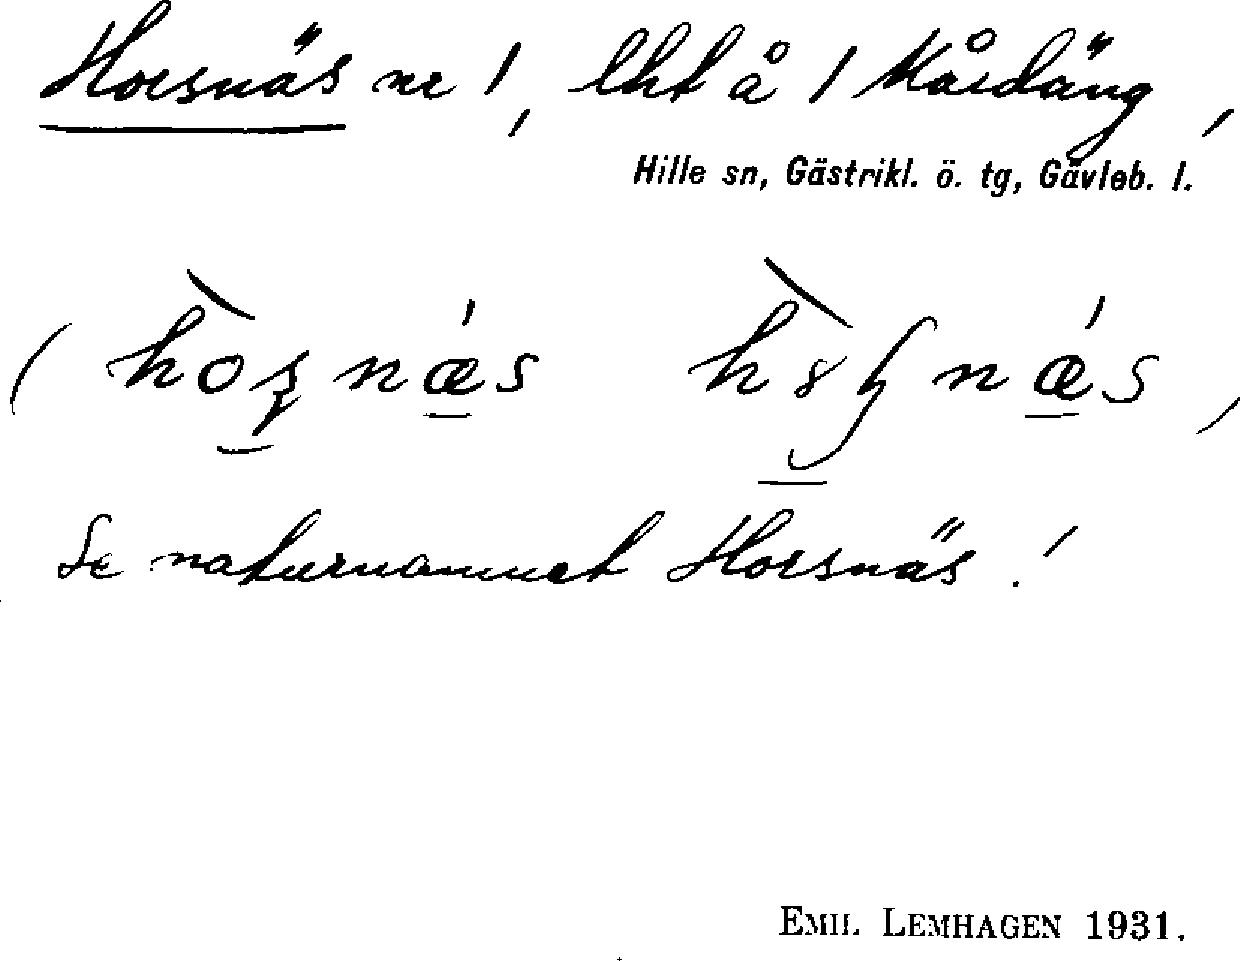 Horsnäs nr 1, lht å 1 Mårdäng,
Hille sn, Gästrikl. ö. tg, Gävleb. l.
Se naturnamnet Horsnäs.
EMIL LEMHAGEN 1931.